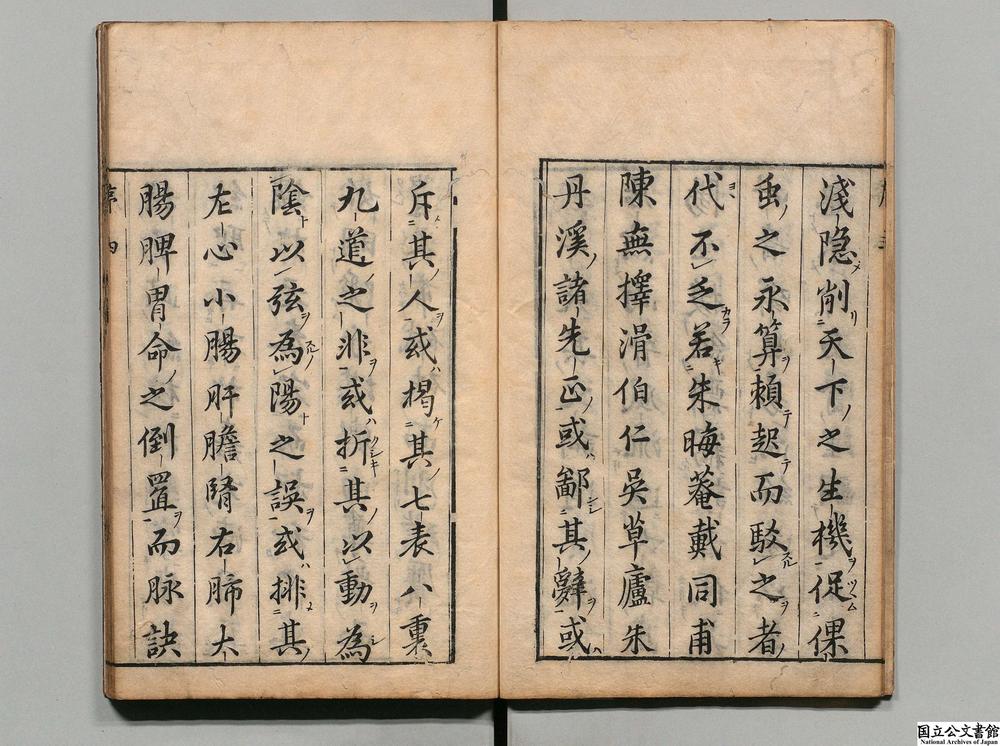 淺隐削天下之生機促倮
虫之永算頼起而駁之者
代不乏若朱晦菴戴同甫
陳無擇滑伯仁吳草廬朱
丹溪諸先正或鄙其辭或
斥其人或揭其七表八裏
九道之非或折其以動為
陰以弦為陽之誤或排其
左心小腸肝膽腎右肺大
腸脾胃命之倒置而脉訣
序 四
国立公文書館
National Archives of Japan